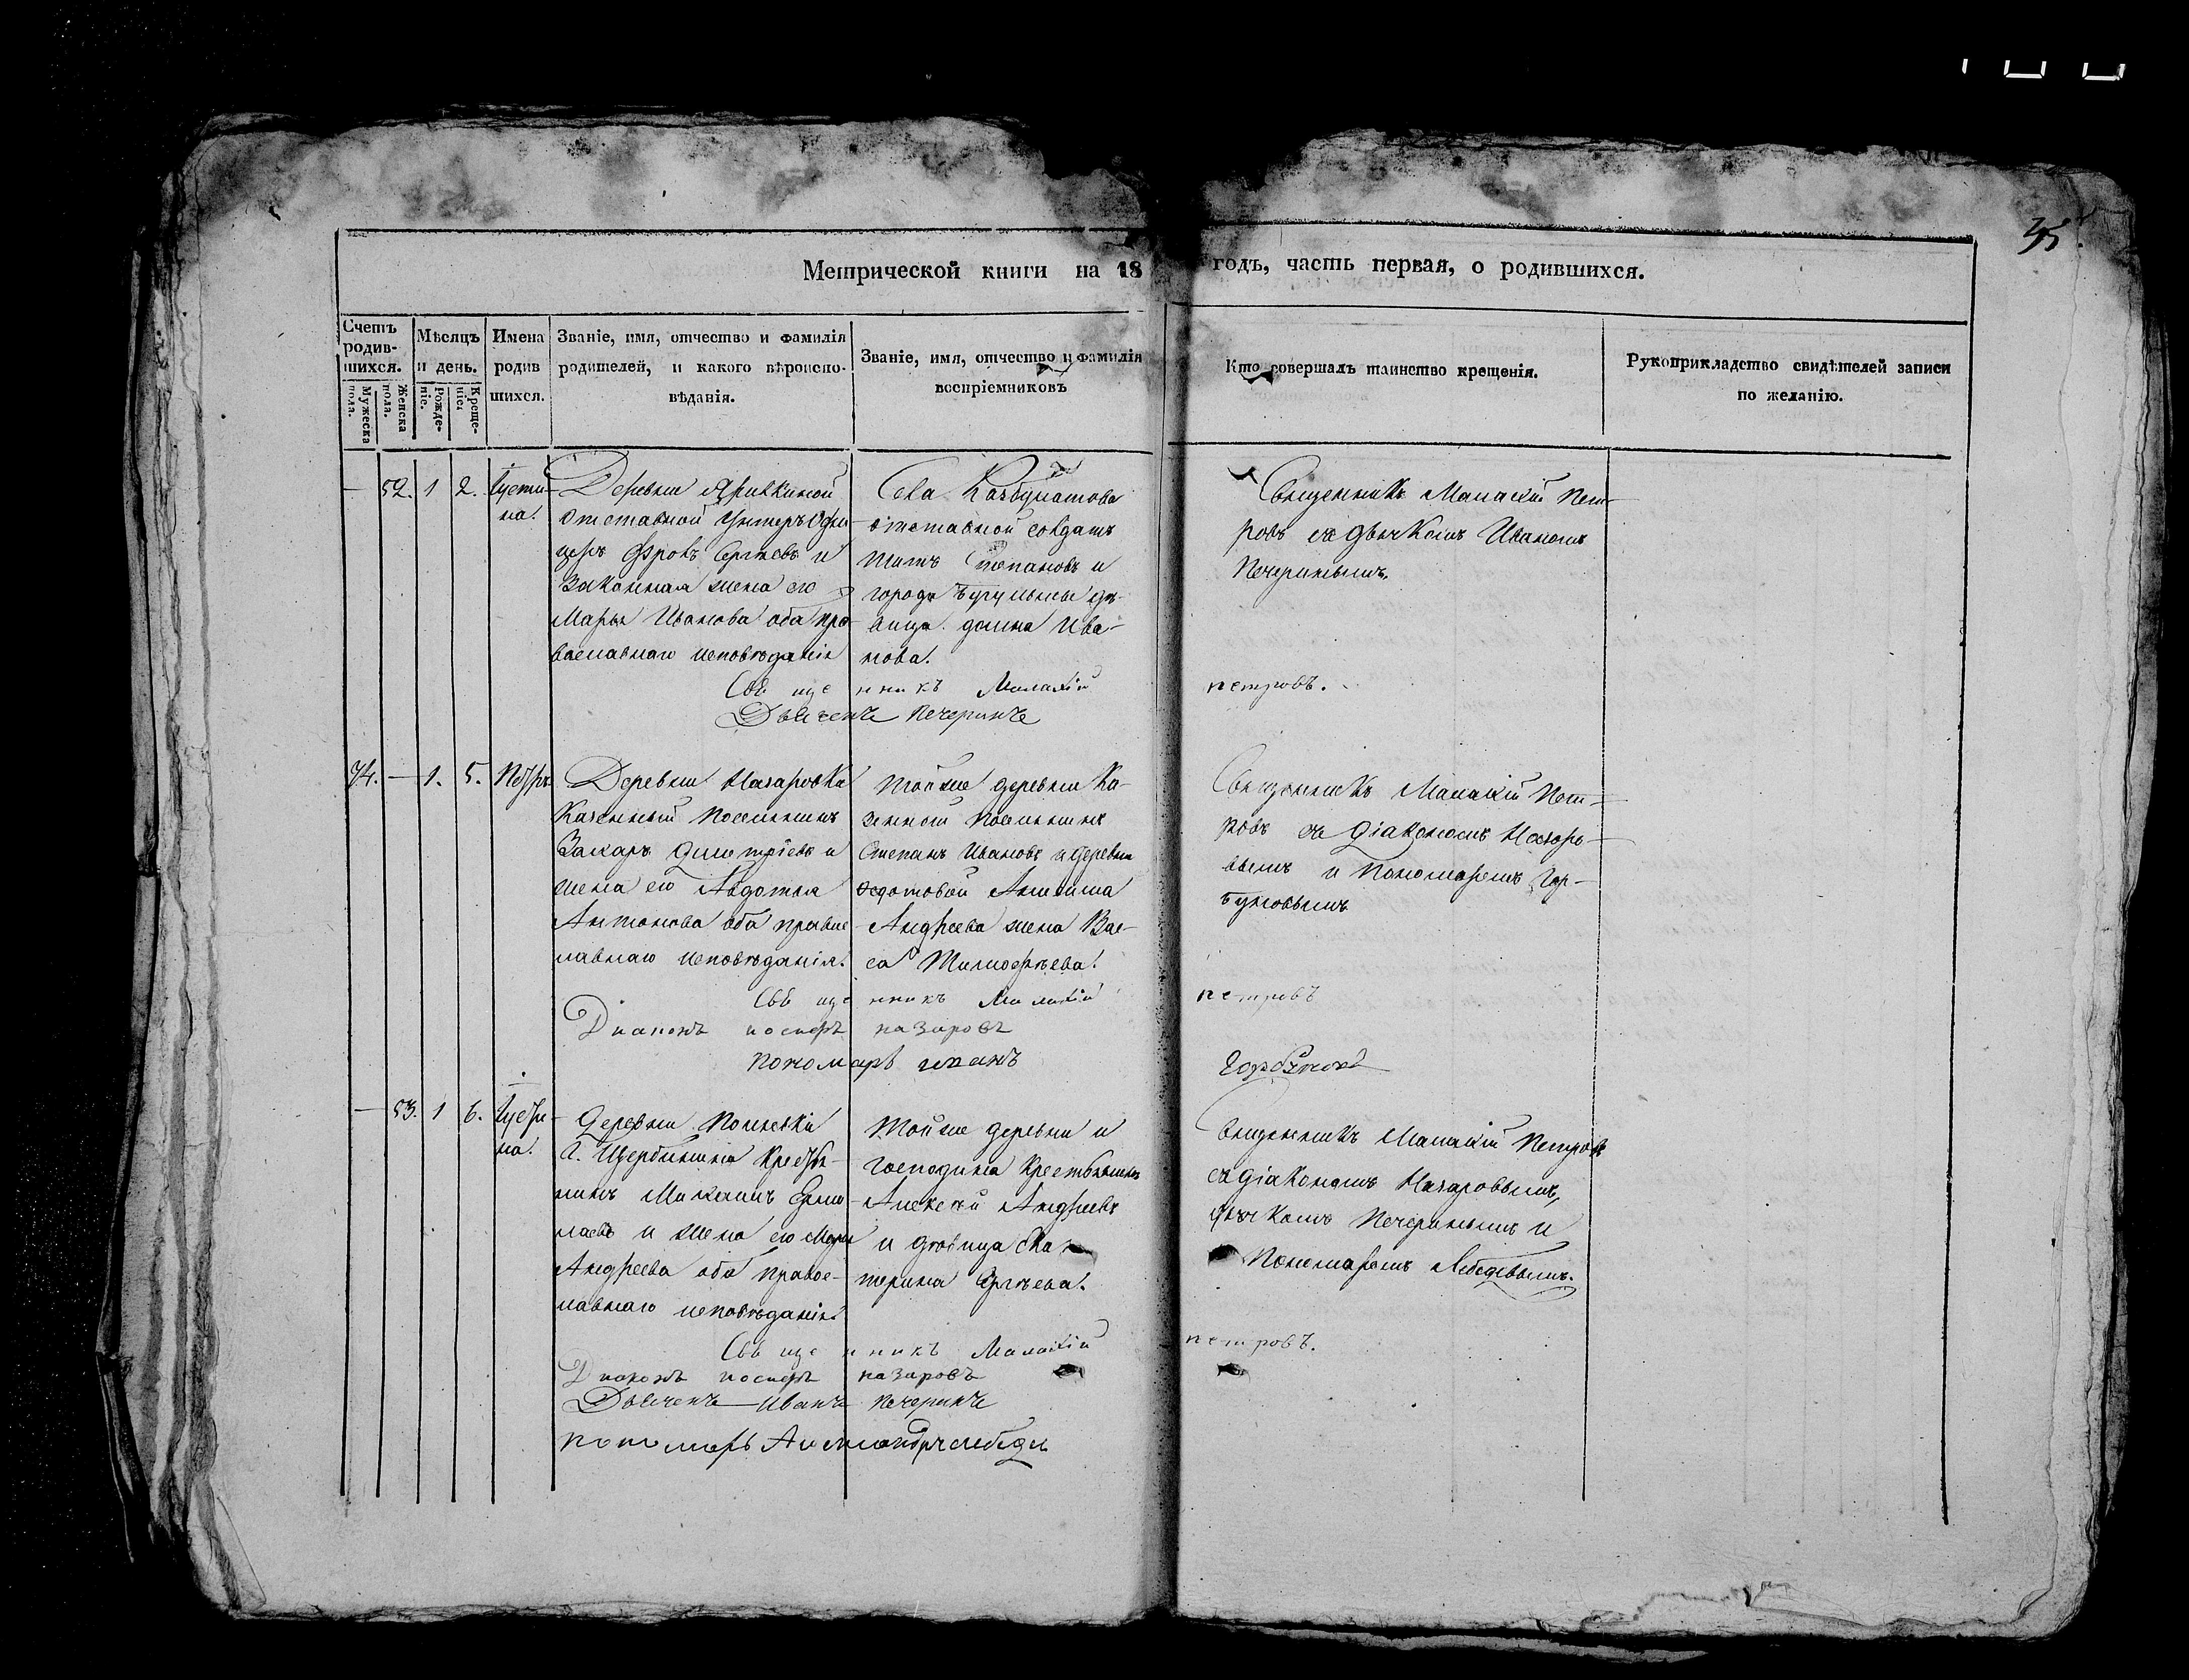 35.
Метрической книги на 18 годъ, часть первая, о родившихся.
Счетъ родив-шихся.
Мужеска пола.
Женска пола.
Мѣсяцъ и день.
Рожде-ніе.
Креще-ніе.
Имена родив шихся.
Званіе, имя, отчество и фамилія
родителей, и какого вѣроиспо-
вѣданія.
Званіе, имя, отчество и фамилія
воспріемниковъ
Кто совершалъ таинство крещенія.
Рукоприкладство свидѣтелей записи
по желанію.
— 52. 1 2. Іусти-
на.
Деревни
отставной унтеръ офи-
церъ Фролъ Сергѣевъ и
законная жена его
Марья Иванова оба пра-
вославнаго исповѣданія
Села
отставной солдатъ
Титъ Степановъ и
города Бугульмы дѣ-
вица Домна Ива-
нова.
Священникъ Малахій Пет-
ровъ съ дьячкомъ Иваномъ
Печеринымъ.
Священникъ Малахій петровъ.
Дьячекъ Печеринъ
74. — 1. 5. Петръ
Деревни Назаровки
Казенный поселянинъ
Захаръ Дмитріевъ и
жена его Авдотья
Антонова оба правос-
лавнаго исповѣданія.
Тойже деревни Ка-
зенной поселянинъ
Степанъ Ивановъ и деревни
Федотовой Анисима
Андреева жена Вас-
са Тимофѣева.
Священникъ Малахій Пет-
ровъ съ Діакономъ Назаро-
вымъ и Пономаремъ Гор-
буновымъ
Священникъ Малахій петровъ
Диаконъ иосифъ назаровъ
пономарь иванъ Горбуновъ
— 53. 1 6.
на.
Деревни
Г. Щербинина Крестья-
нинъ Михаилъ Ермо-
лаевъ и жена его Марья
Андреева оба правос-
лавнаго исповѣданія.
Тойже деревни и
господина Крестьянинъ
Алексѣй Андреевъ
и дѣвица Ека-
терина Сергѣева.
Священникъ Малахій Петровъ
съ діакономъ Назаровымъ,
дьячкомъ Печеринымъ и
Пономаремъ Лебедевымъ.
Священникъ Малахій петровъ.
Диаконъ иосифъ назаровъ
Дьячекъ Иванъ Печеринъ
пономарь Александръ лебедевъ